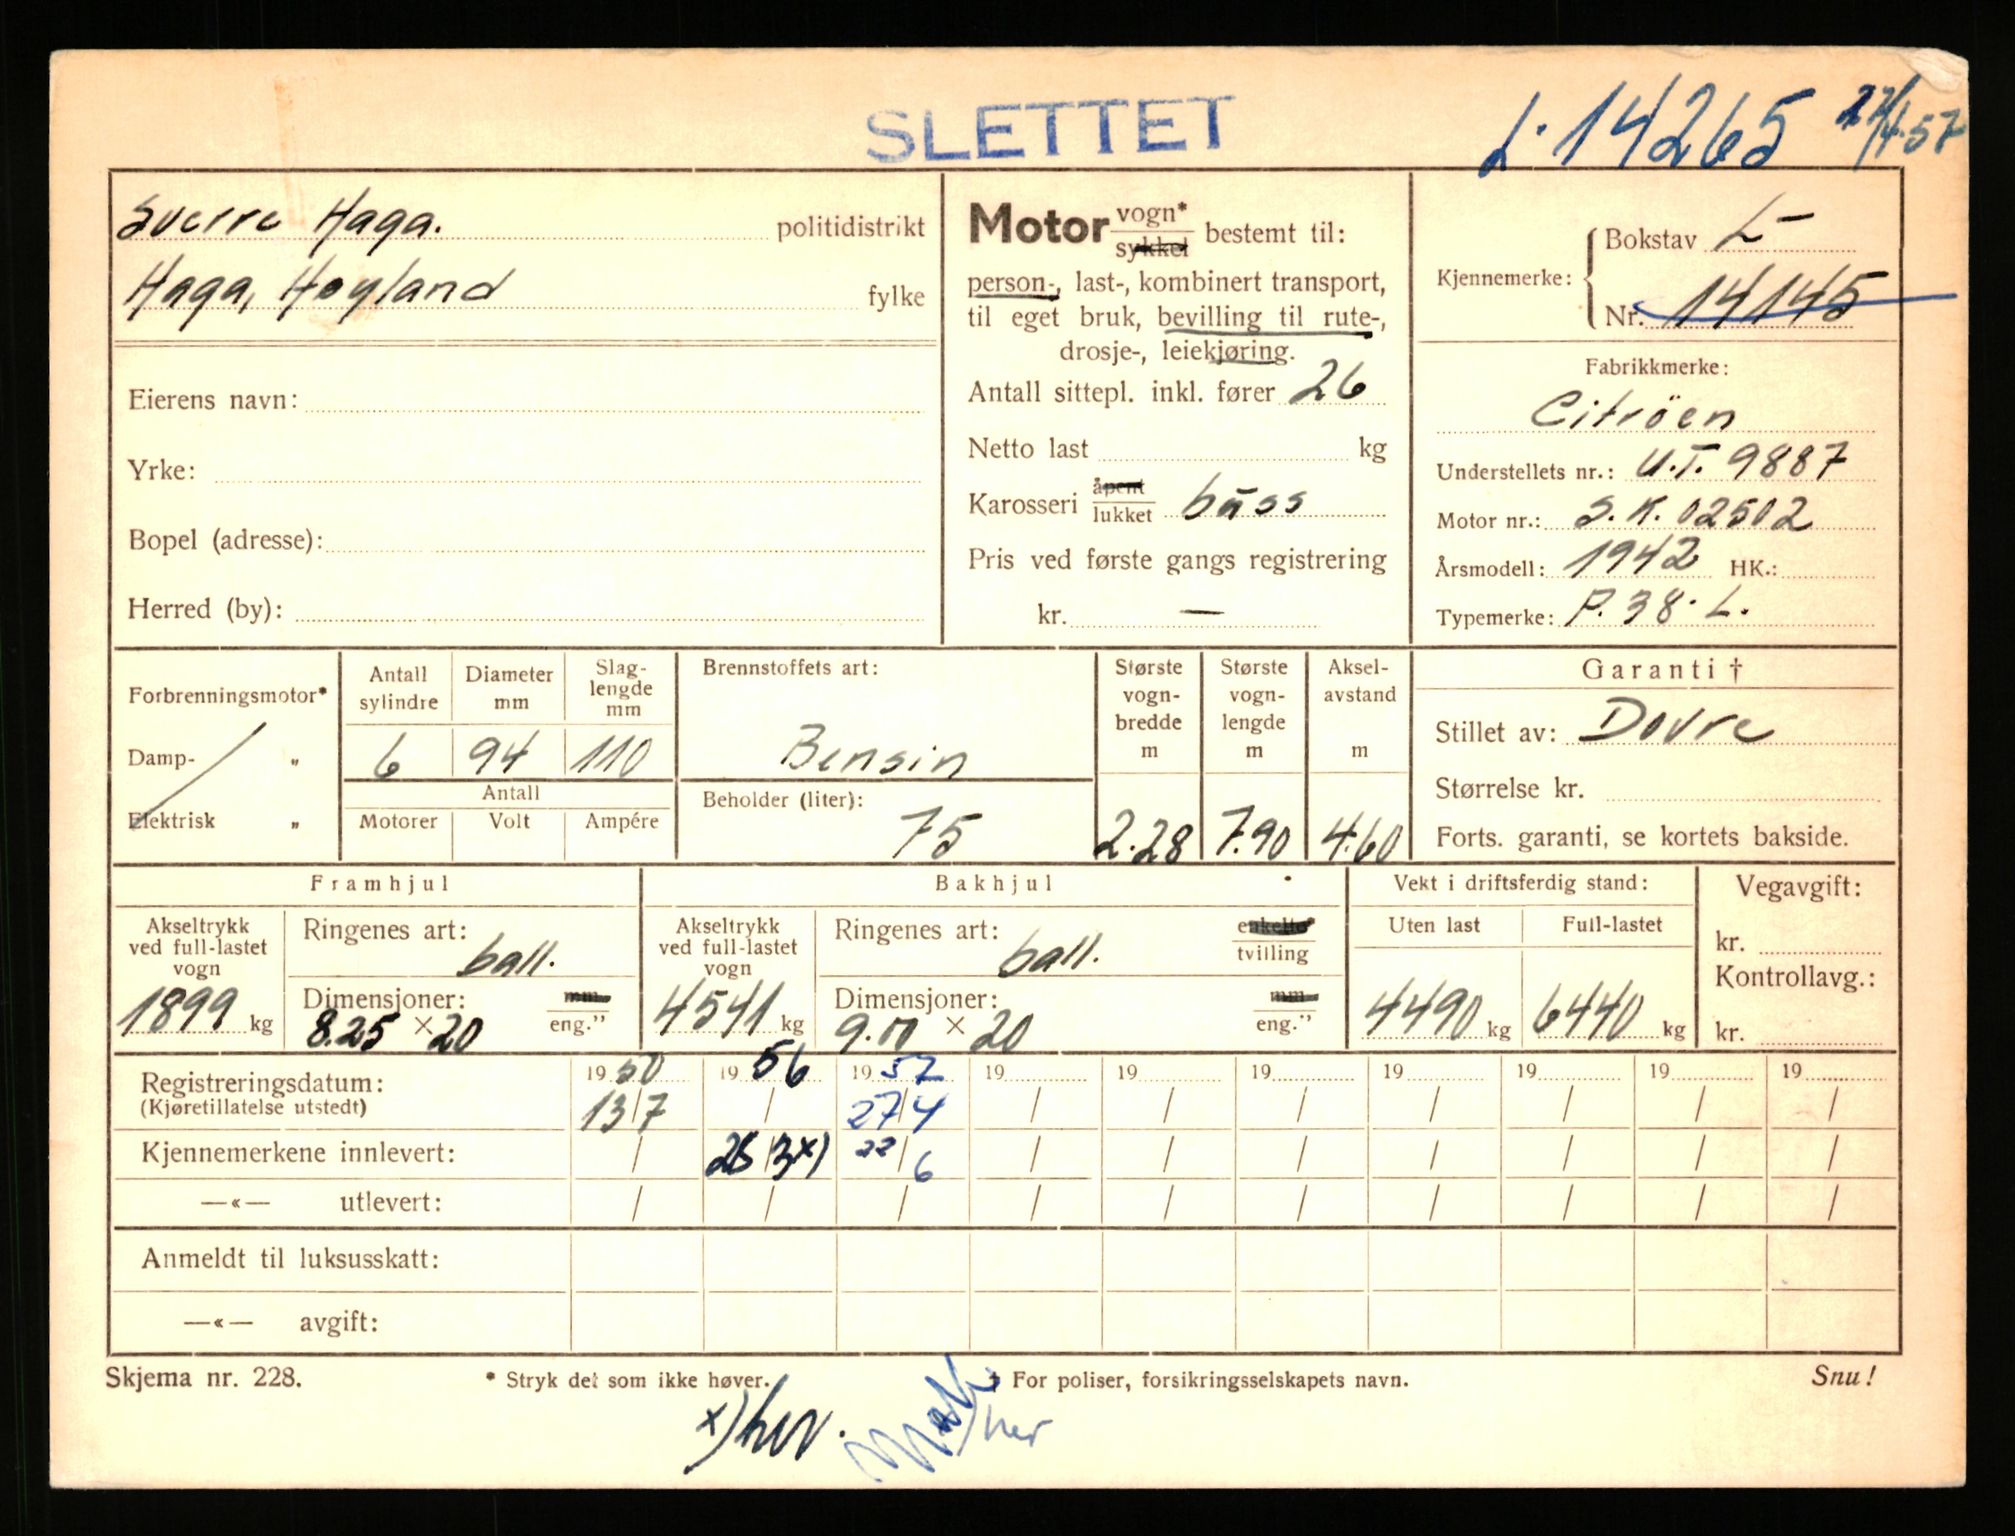 SLETTET
L. 14265 27/4.57
Sverre Haga. politidistrikt
Haga, Høyland fylke
Eierens navn:
Yrke:
Bopel (adresse):
Herred (by):
Motor vogn* / sykkel bestemt til:
person-, last-, kombinert transport,
til eget bruk, bevilling til rute-,
drosje-, leiekjøring.
Antall sittepl. inkl. fører 26
Netto last kg
Karosseri åpent / lukket buss
Pris ved første gangs registrering
kr. —
Kjennemerke: Bokstav L-
Nr. 14145
Fabrikkmerke:
Citröen
Understellets nr.: U.T. 9887
Motor nr.: S.K. 02502
Årsmodell: 1942 HK.:
Typemerke: P. 38. L.
Forbrenningsmotor*
Damp- „
Elektrisk „
Antall sylindre Diameter mm Slag-lengde mm
6 94 110
Antall
Motorer Volt Ampére
Brennstoffets art:
Bensin
Beholder (liter):
75
Største vogn-bredde m
2.28
Største vogn-lengde m
7.90
Aksel-avstand m
4.60
Garanti †
Stillet av: Dovre
Størrelse kr.
Forts. garanti, se kortets bakside.
Framhjul
Akseltrykk ved full-lastet vogn
1899 kg
Ringenes art:
ball.
Dimensjoner: mm / eng."
8.25 × 20
Bakhjul
Akseltrykk ved full-lastet vogn
4541 kg
Ringenes art: enkelte* / tvilling
ball.
Dimensjoner: mm / eng."
9.00 × 20
Vekt i driftsferdig stand:
Uten last Full-lastet
4490 kg 6440 kg
Vegavgift:
kr.
Kontrollavg.:
kr.
Registreringsdatum: 1950 1956 1957 19 19 19 19 19 19 19
(Kjøretillatelse utstedt) 13/7 / 27/4 / / / / / / /
Kjennemerkene innlevert: / 28/3 x) 22/6 / / / / / / /
—«— utlevert: / / / / / / / / / /
Anmeldt til luksusskatt:
—«— avgift:
Skjema nr. 228. * Stryk det som ikke høver. † For poliser, forsikringsselskapets navn. Snu!
x)